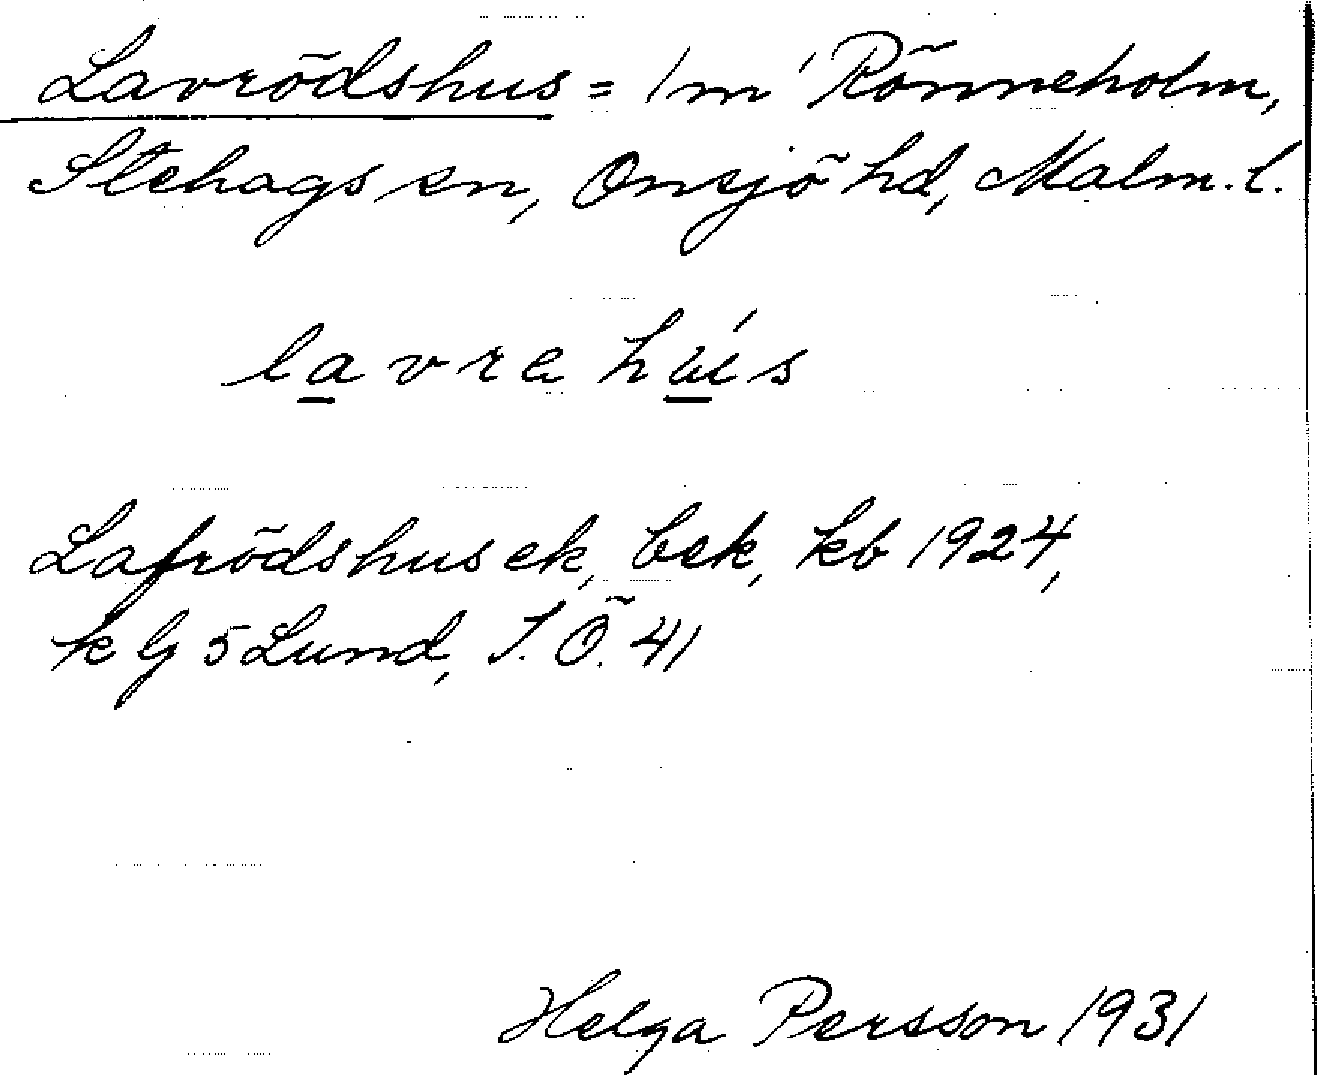 Lavrödshus = 1 m' Rönneholm,
Stehags sn, Onsjö hd, Malm. l.
lavrahús
Lafrödshus ek, bek, kb 1924,
k G 5 Lund, J. Ö. 41
Helga Persson 1931